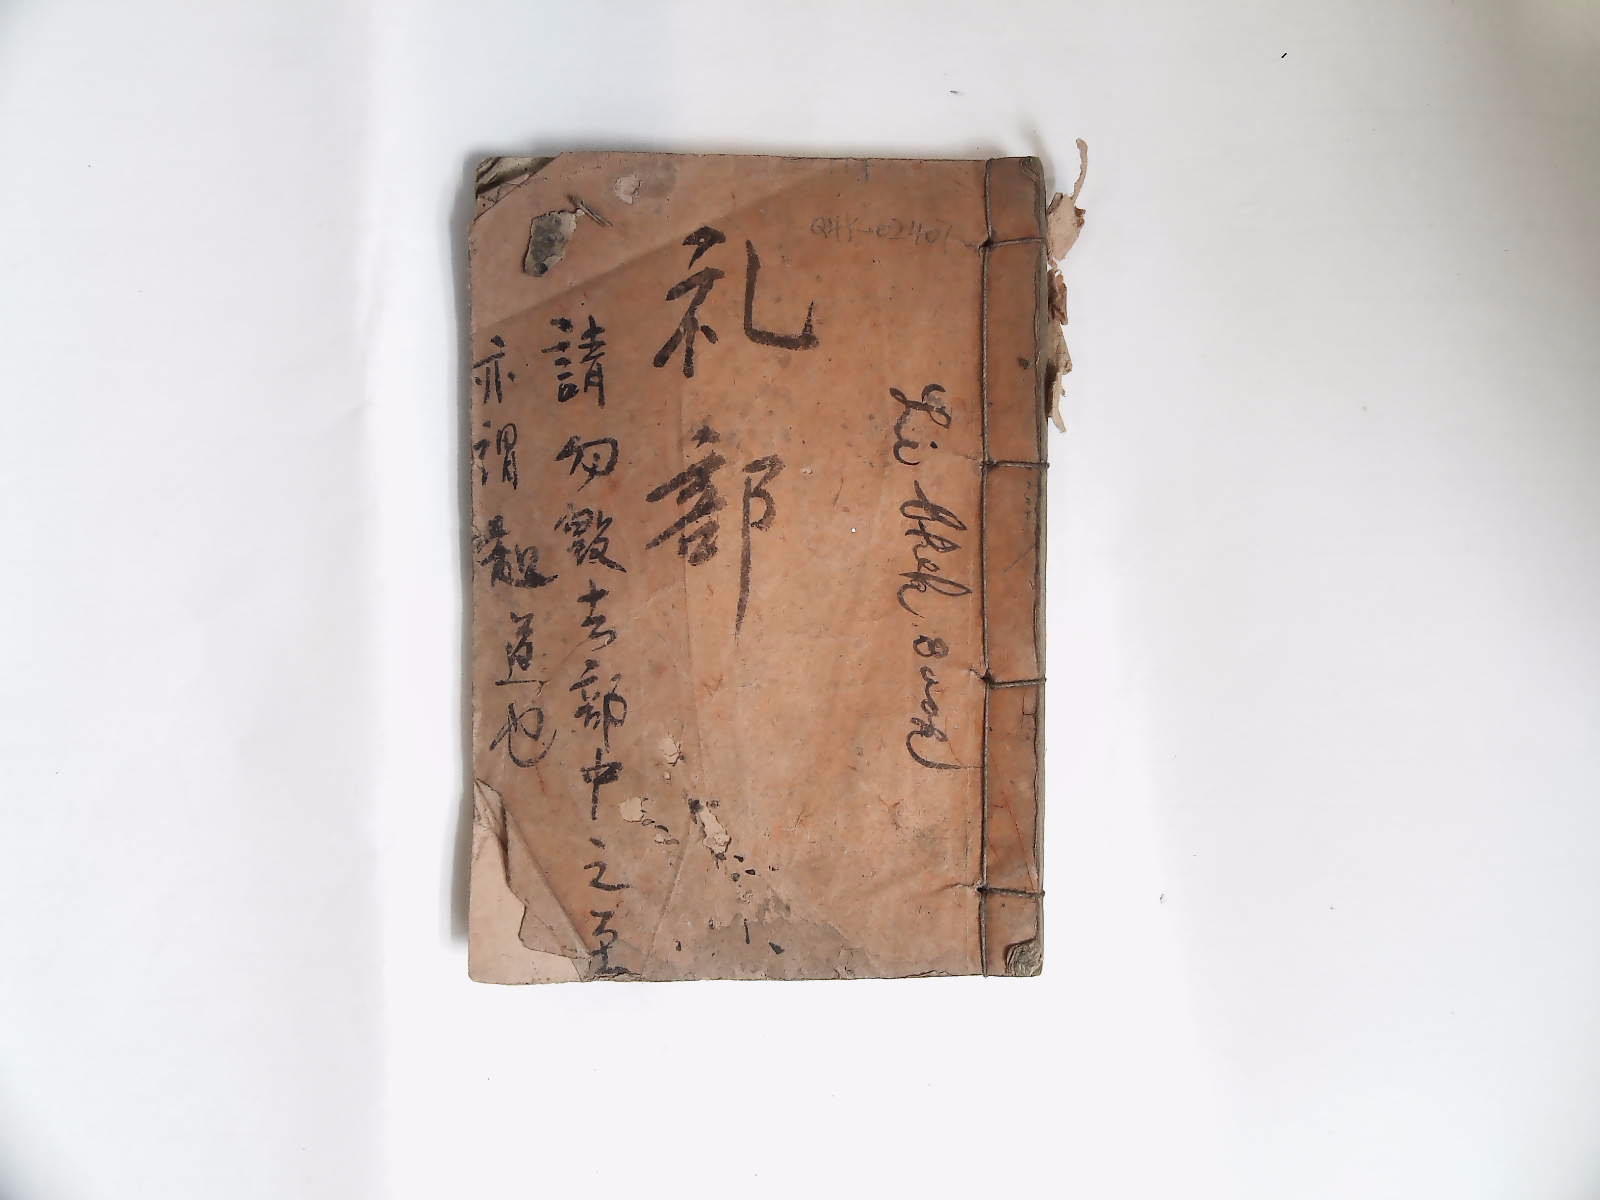 QHY-02401
Li Shek Oook
礼部
請勿毀去部中之
亦謂 道也